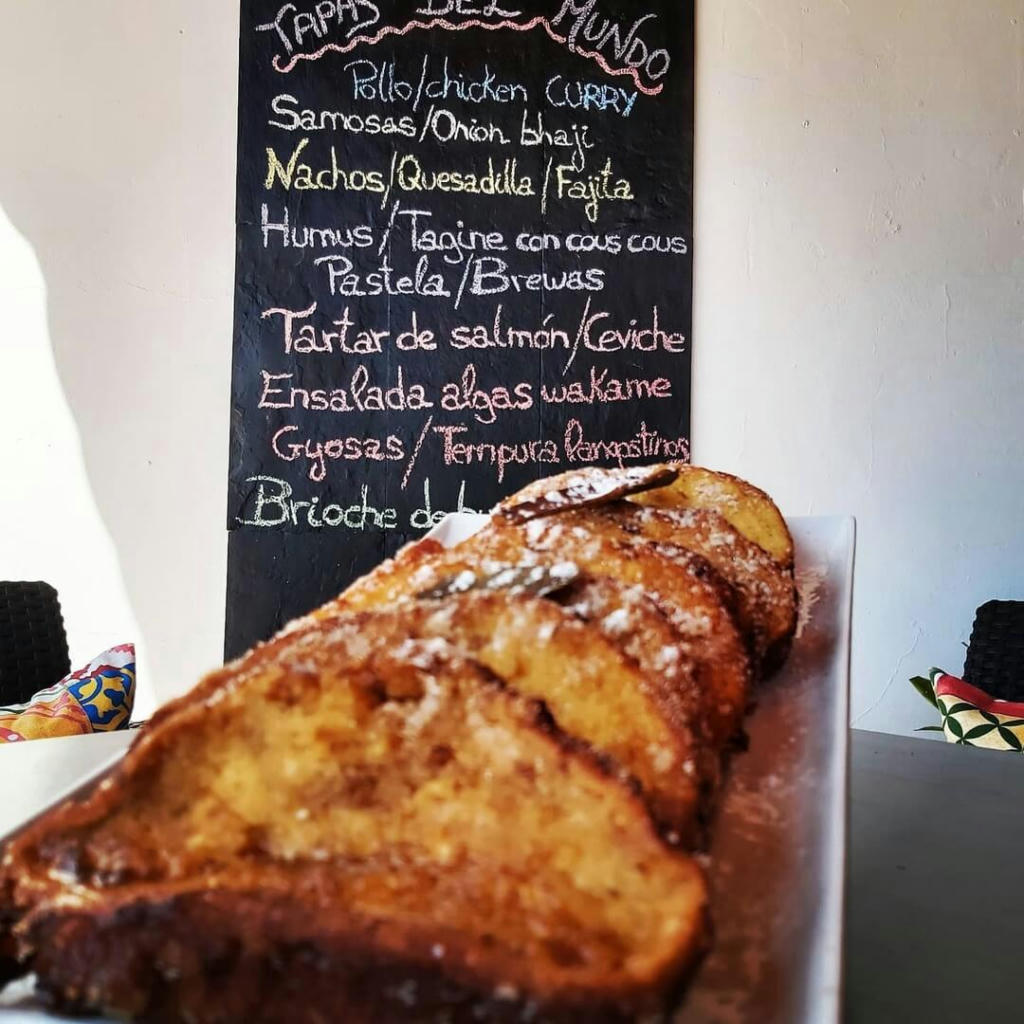 TAPAS DEL MUNDO
Pollo/chicken CURRY
Samosas/Onion bhaji
Nachos/Quesadilla/Fajita
Humus/Tagine con cous cous
Pastela/Brewas
Tartar de salmón/Ceviche
Ensalada algas wakame
Gyosas/Tempura langostinos
Brioche de